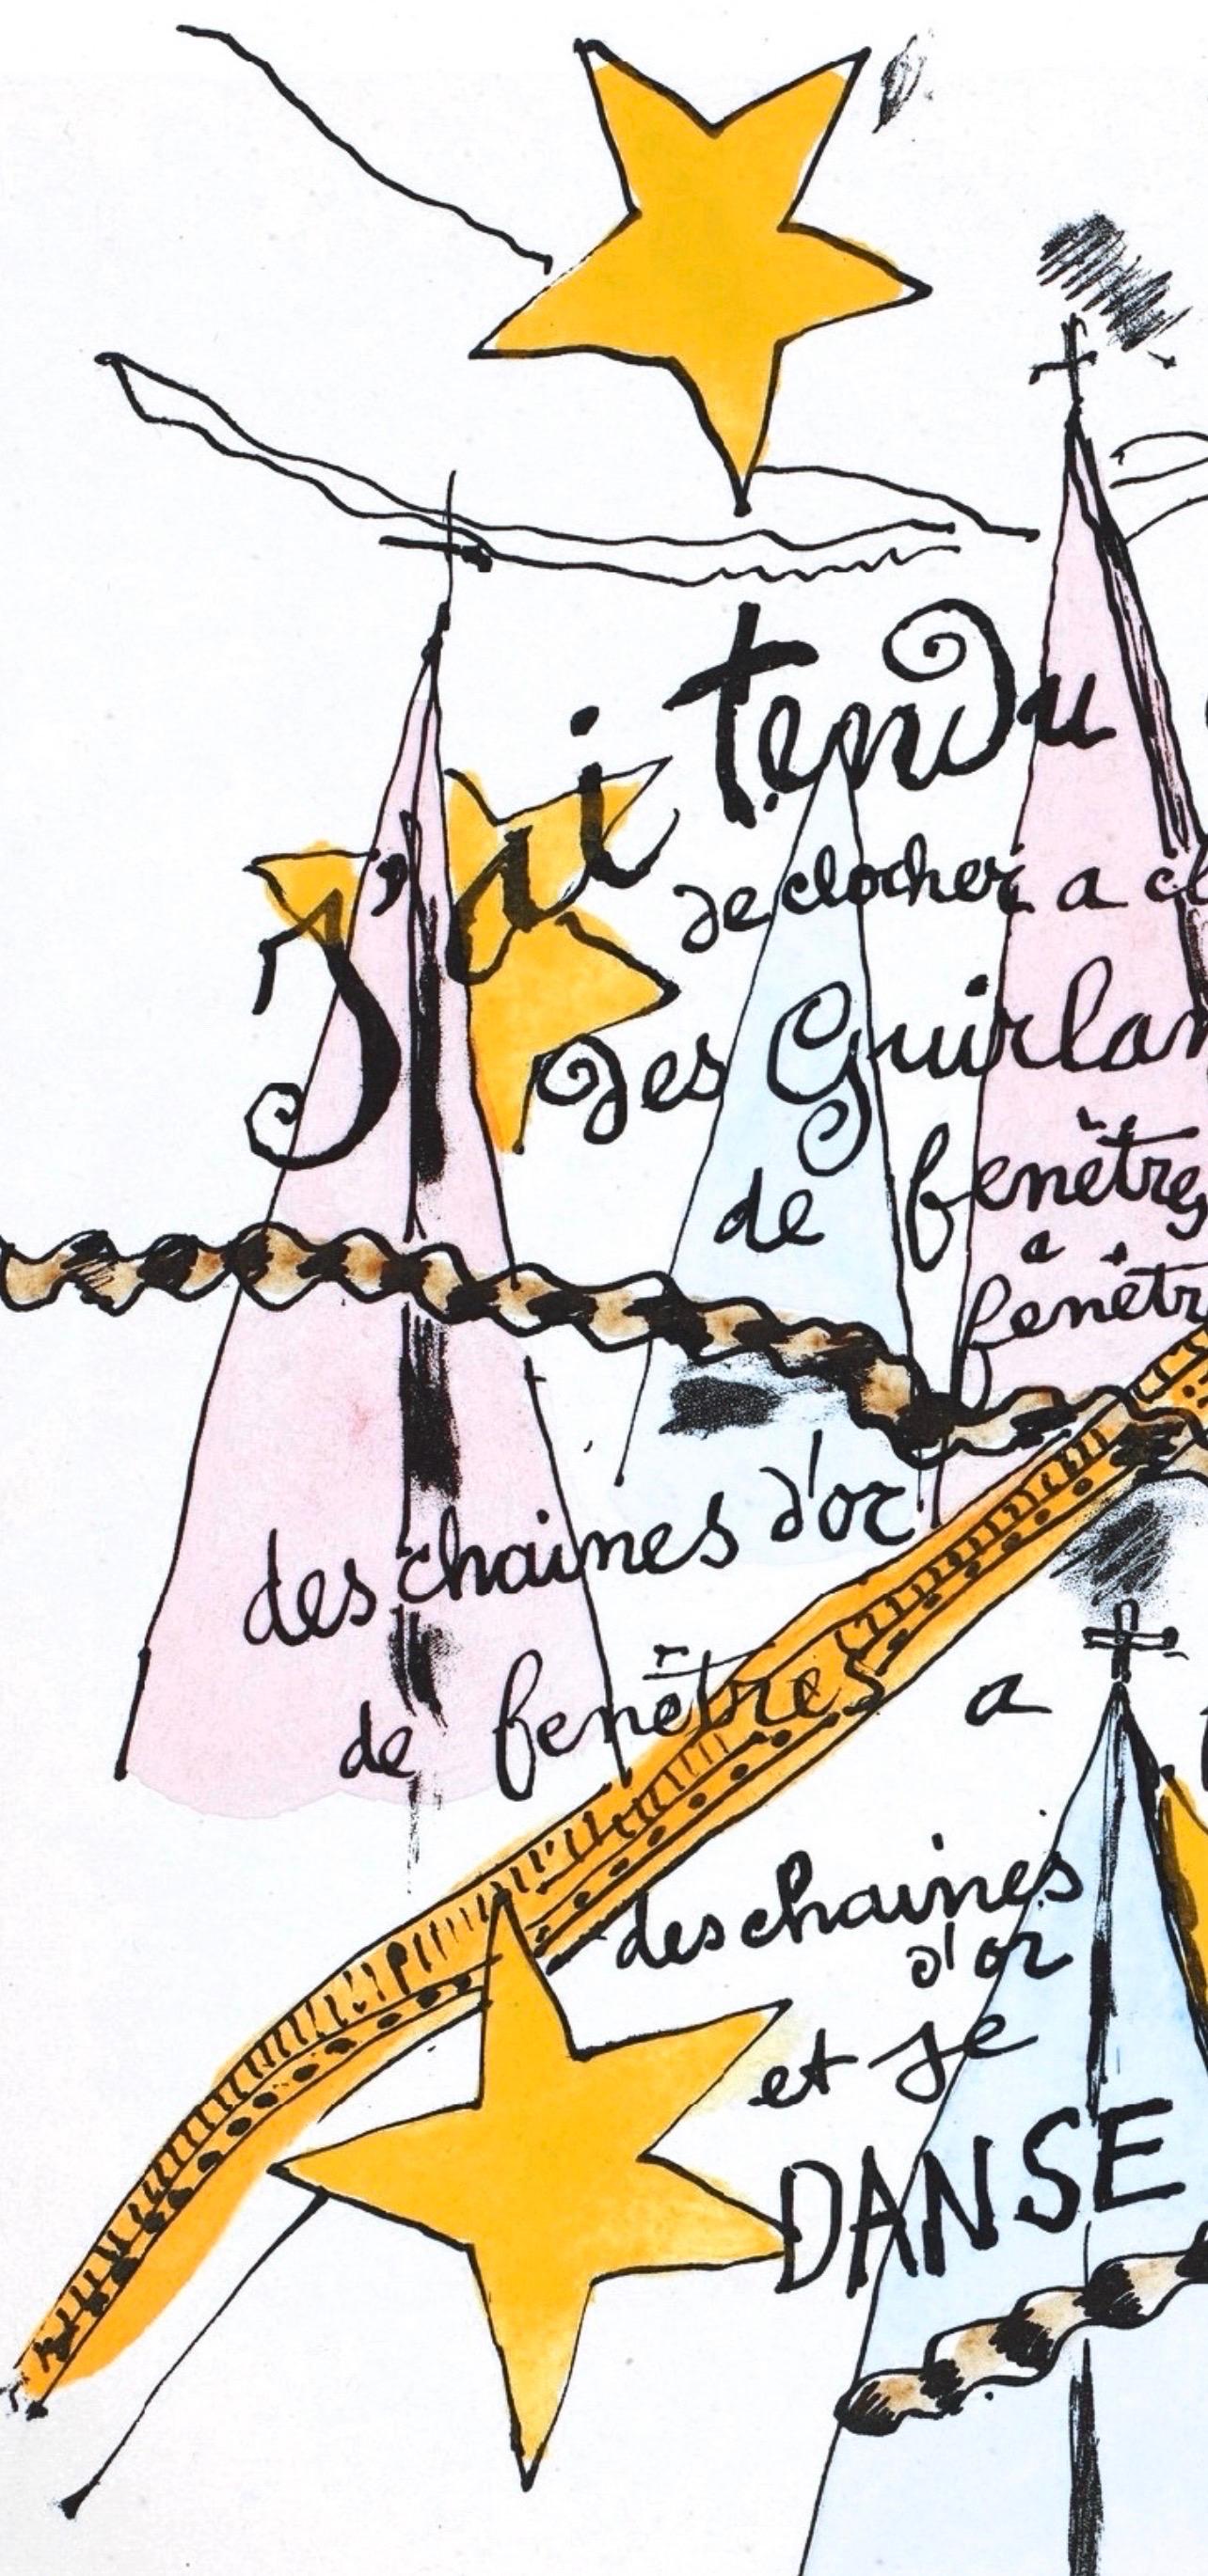 J'ai tendu
de clocher a cl
des Guirlan
de fenêtres
a
fenêtr
des chaines d'or
de fenêtres a
des chaines
d'or
et je
DANSE